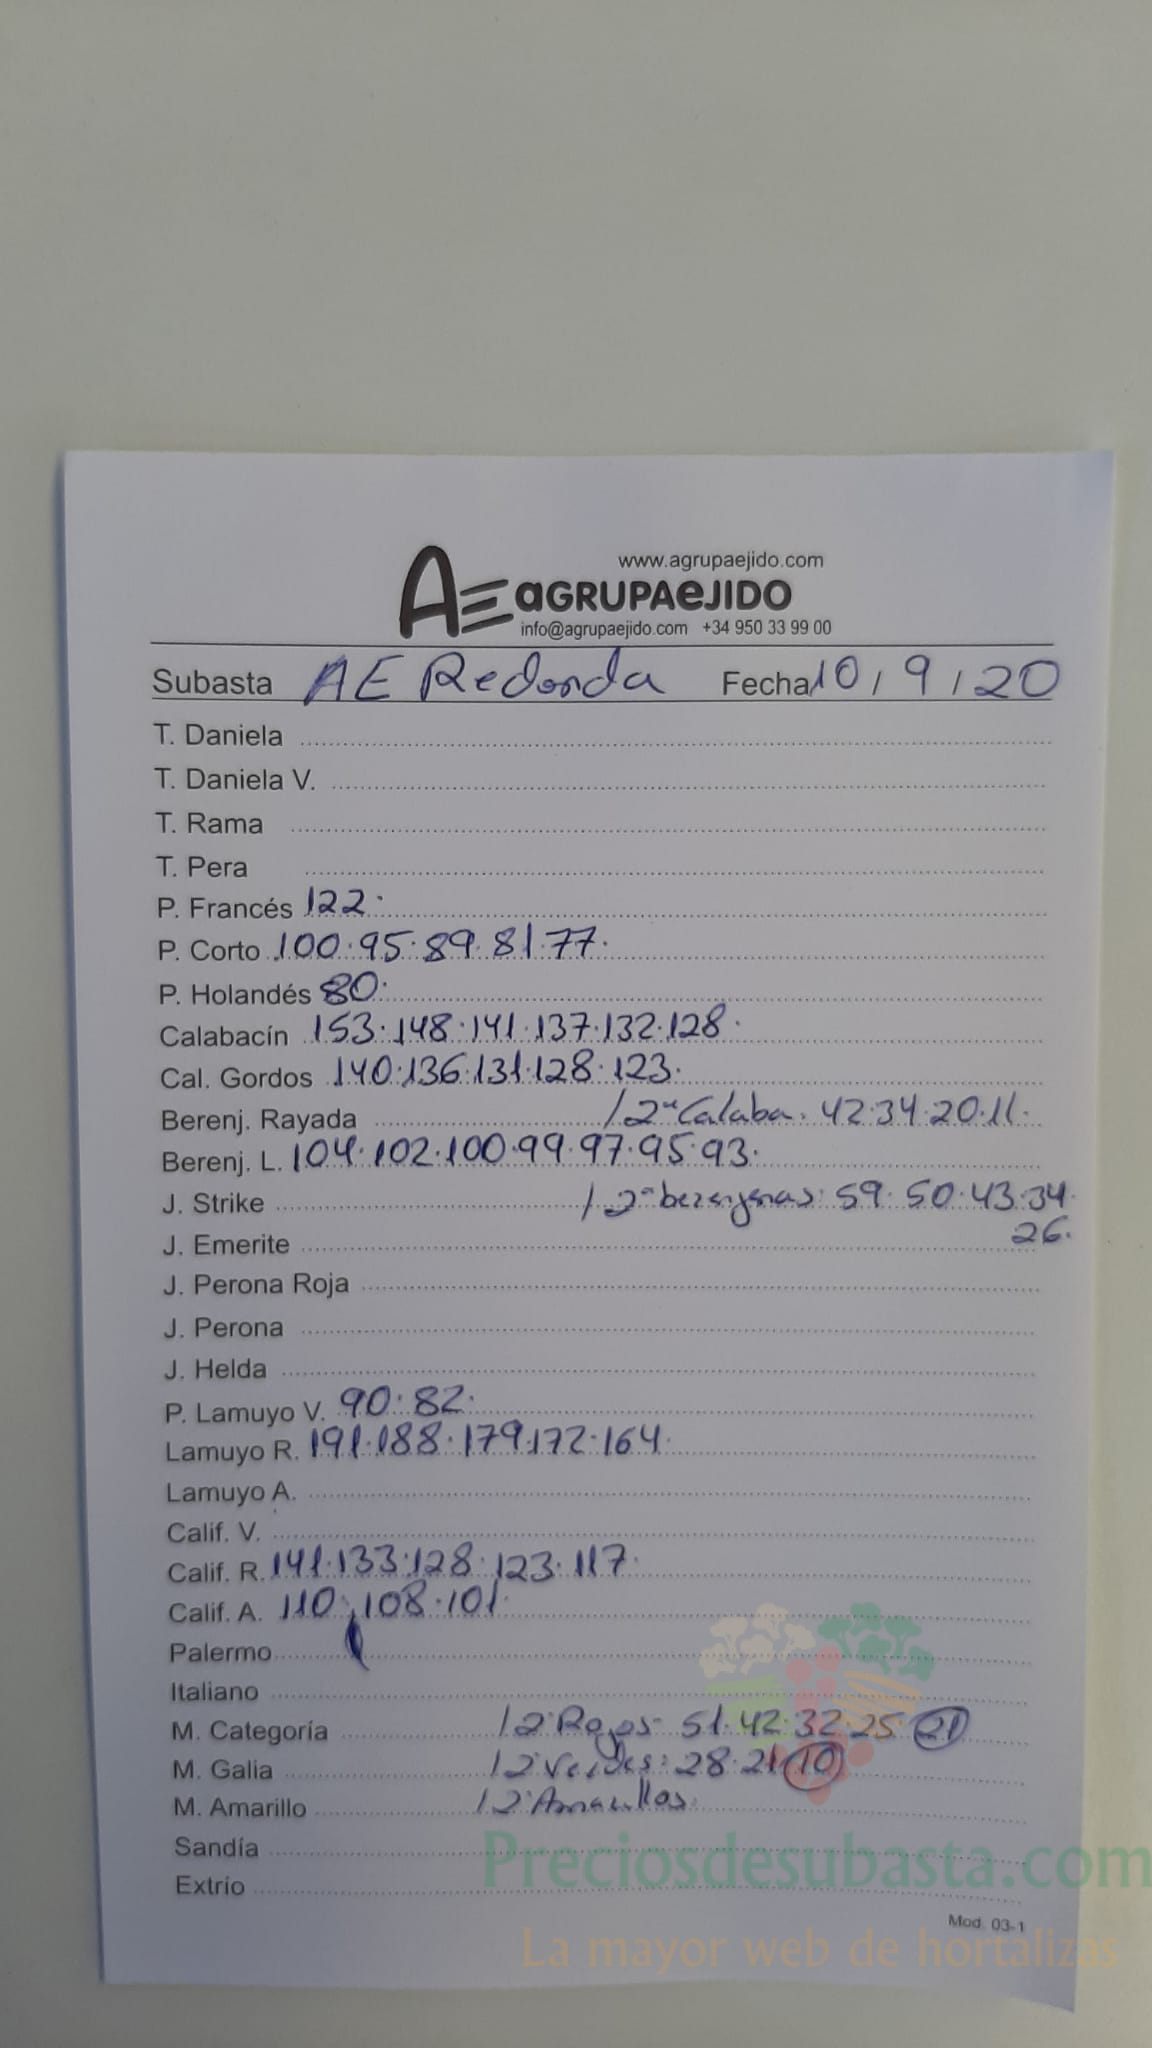 www.agrupaejido.com
AE aGRUPAeJIDO
info@agrupaejido.com +34 950 33 99 00
Subasta AE Redonda Fecha 10 / 9 / 20
T. Daniela
T. Daniela V.
T. Rama
T. Pera
P. Francés 122.
P. Corto 100.95.89.81.77.
P. Holandés 80.
Calabacín 153.148.141.137.132.128.
Cal. Gordos 140.136.131.128.123.
Berenj. Rayada / 2ª Calaba. 42.34.20.11.
Berenj. L. 104.102.100.99.97.95.93.
J. Strike / 2ª berenjenas: 59.50.43.34.
26.
J. Emerite
J. Perona Roja
J. Perona
J. Helda
P. Lamuyo V. 90.82.
Lamuyo R. 191.188.179.172.164.
Lamuyo A.
Calif. V.
Calif. R. 141.133.128.123.117.
Calif. A. 110.108.101.
Palermo
Italiano
M. Categoría / 2ª Rojos: 51.42.32.25 21
M. Galia / 2ª Verdes: 28.21.10
M. Amarillo / 2ª Amarillos.
Sandía
Extrío
Mod. 03-1
Preciosdesubasta.com
La mayor web de hortalizas